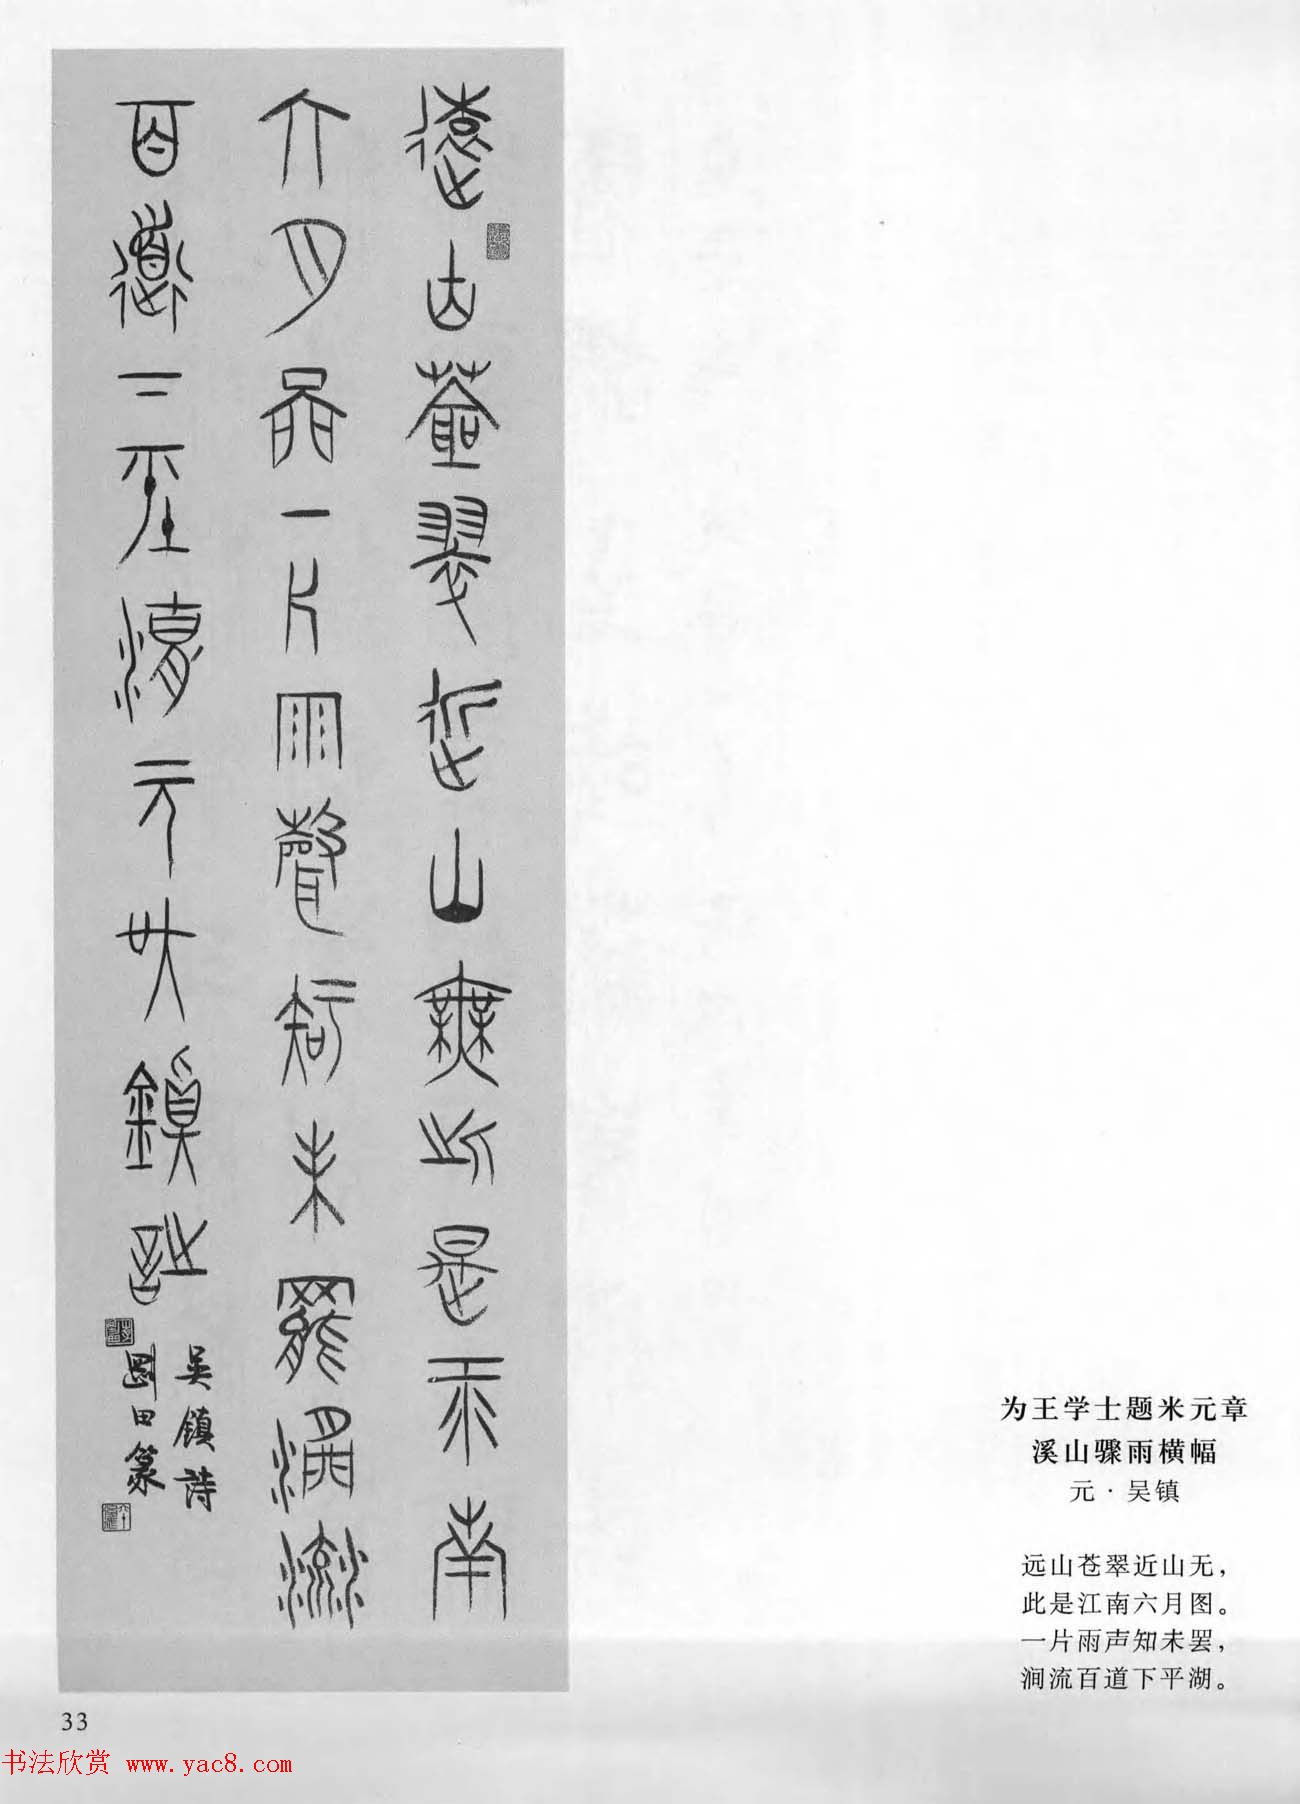 遠山蒼翠近山無此是江南
六月圖一片雨聲知未罷澗流
百道下平湖元吳鎮詩
吳鎮詩
剛田篆
为王学士题米元章
溪山骤雨横幅
元·吴镇
远山苍翠近山无，
此是江南六月图。
一片雨声知未罢，
涧流百道下平湖。
33
书法欣赏 www.yac8.com